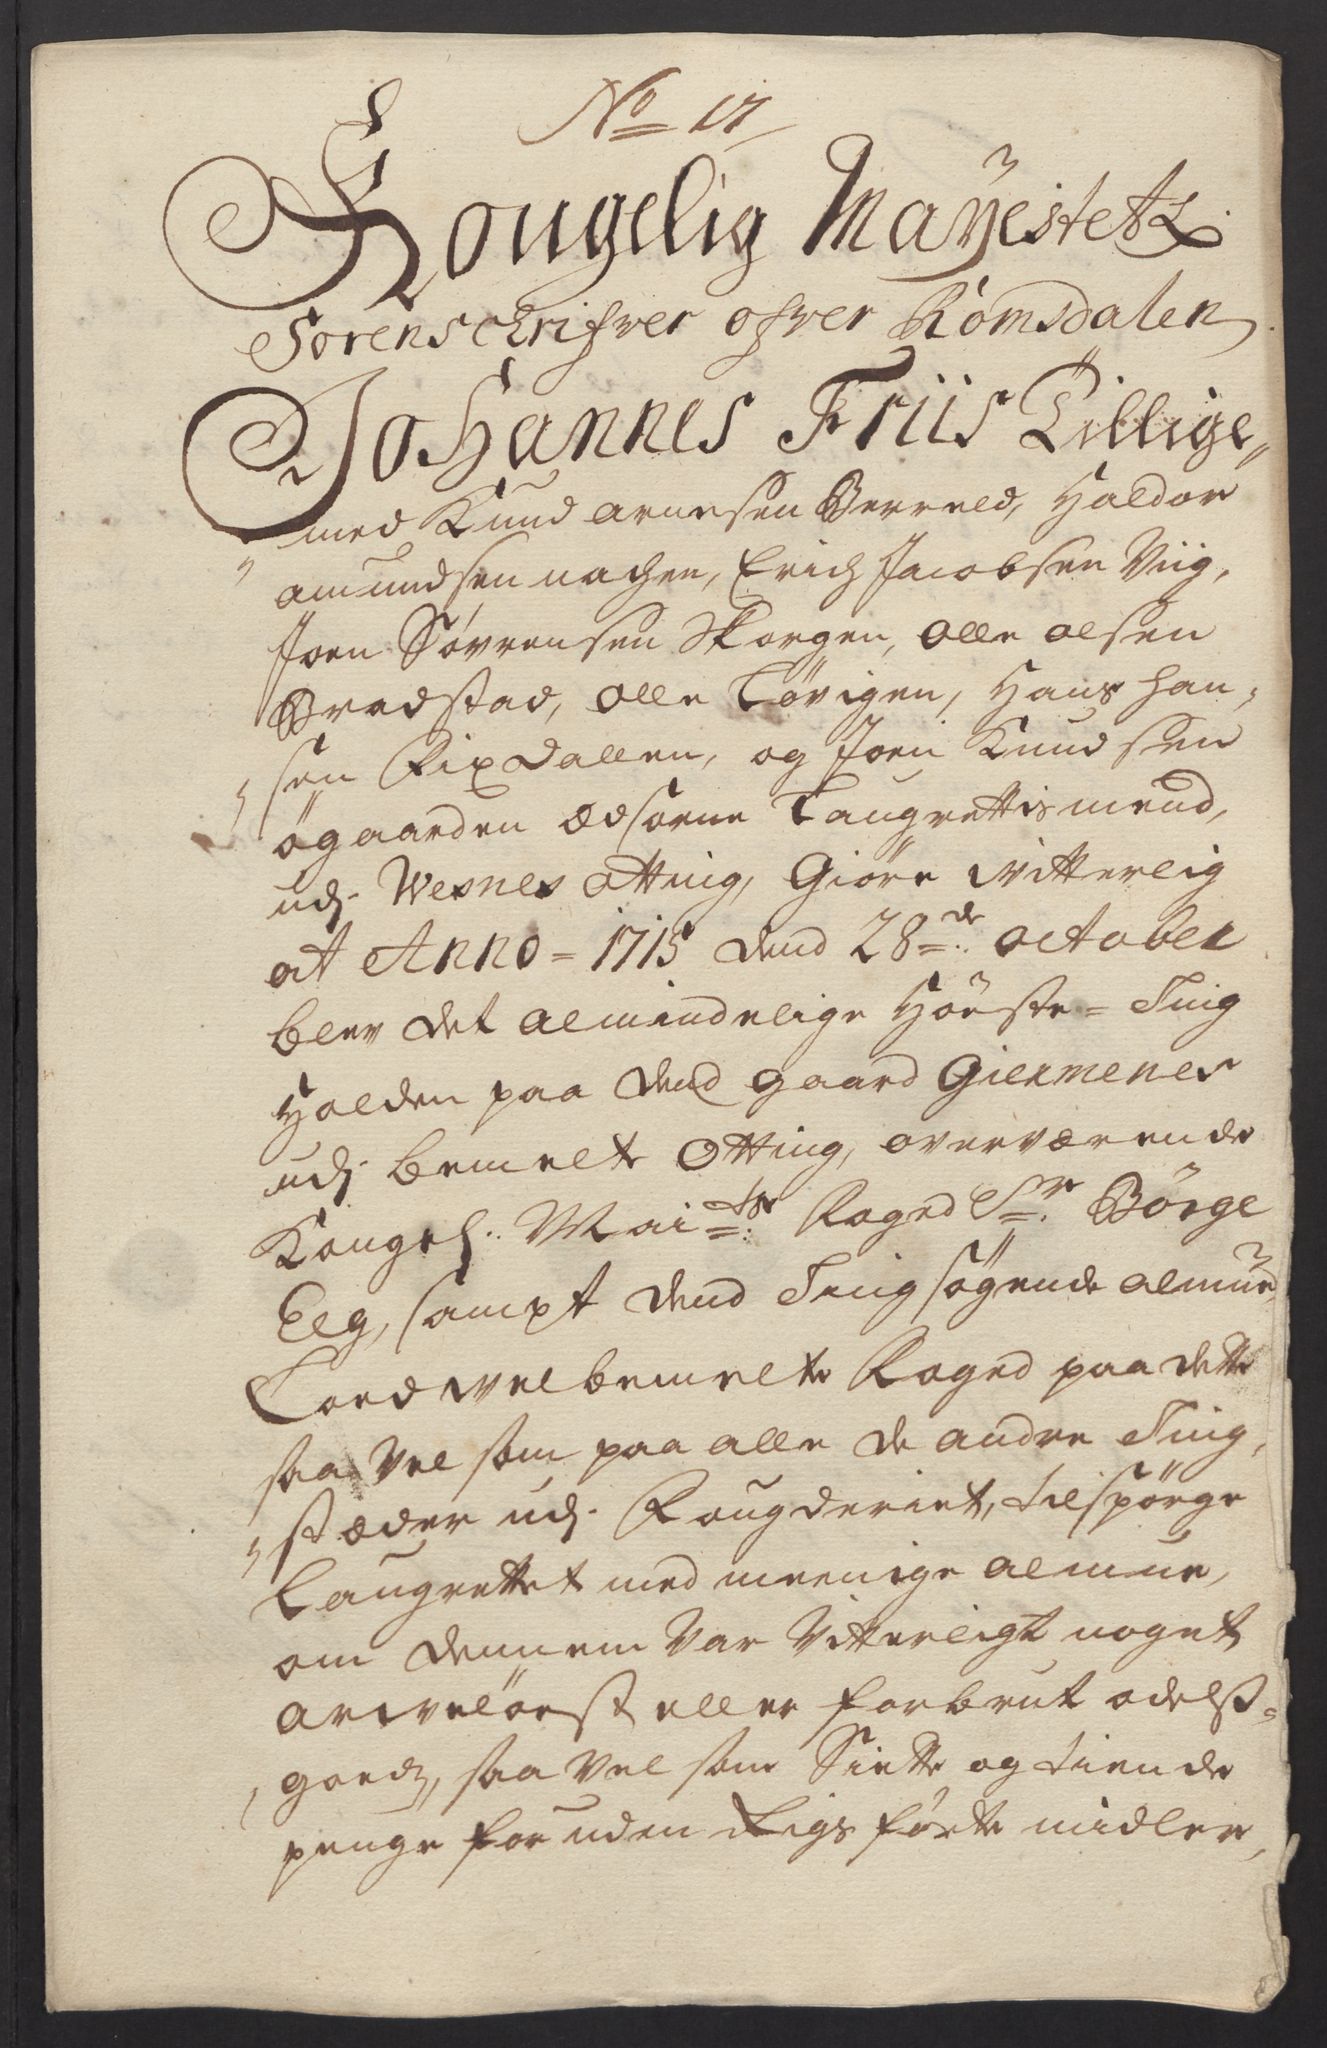 No 17
Kongelig Mayestetz
Sorenschrifver ofver Romsdalen
Johannes Friis Lillige
med Knud Arnesen Berreld, Haldor
Amundsen Nachen, Erich Jacobsen Viig,
Joen Sövrensen Skorgen, Olle Olsen
Bredstad, Olle Lövigen, Hans Han-
sen Rixdallen, og Joen Knudsen
Ögaarden Edsorne Laugrettismend,
udj Wesnes Otting, Giöre Vitterlig
at Anno 1715 dend 28de October
blev det almindelige Höste-Ting
Holden paa dend gaard Giermenes
udj bemelte Otting, overværende
Kongel. Maits Foged Sr Börge
Elg, sampt dend Tingsögende almue,
Loed velbemelte Foged paa dette
saa vel som paa alle de andre Ting-
stæder udj Fougderiet, tilspörge
Laugrettet med meenige almue,
om dennem var Vitterligt noget
arveløest eller forbrut odelss-
goeds, saa vel som Siette og tiende
penge for uden Rigs förte midler,